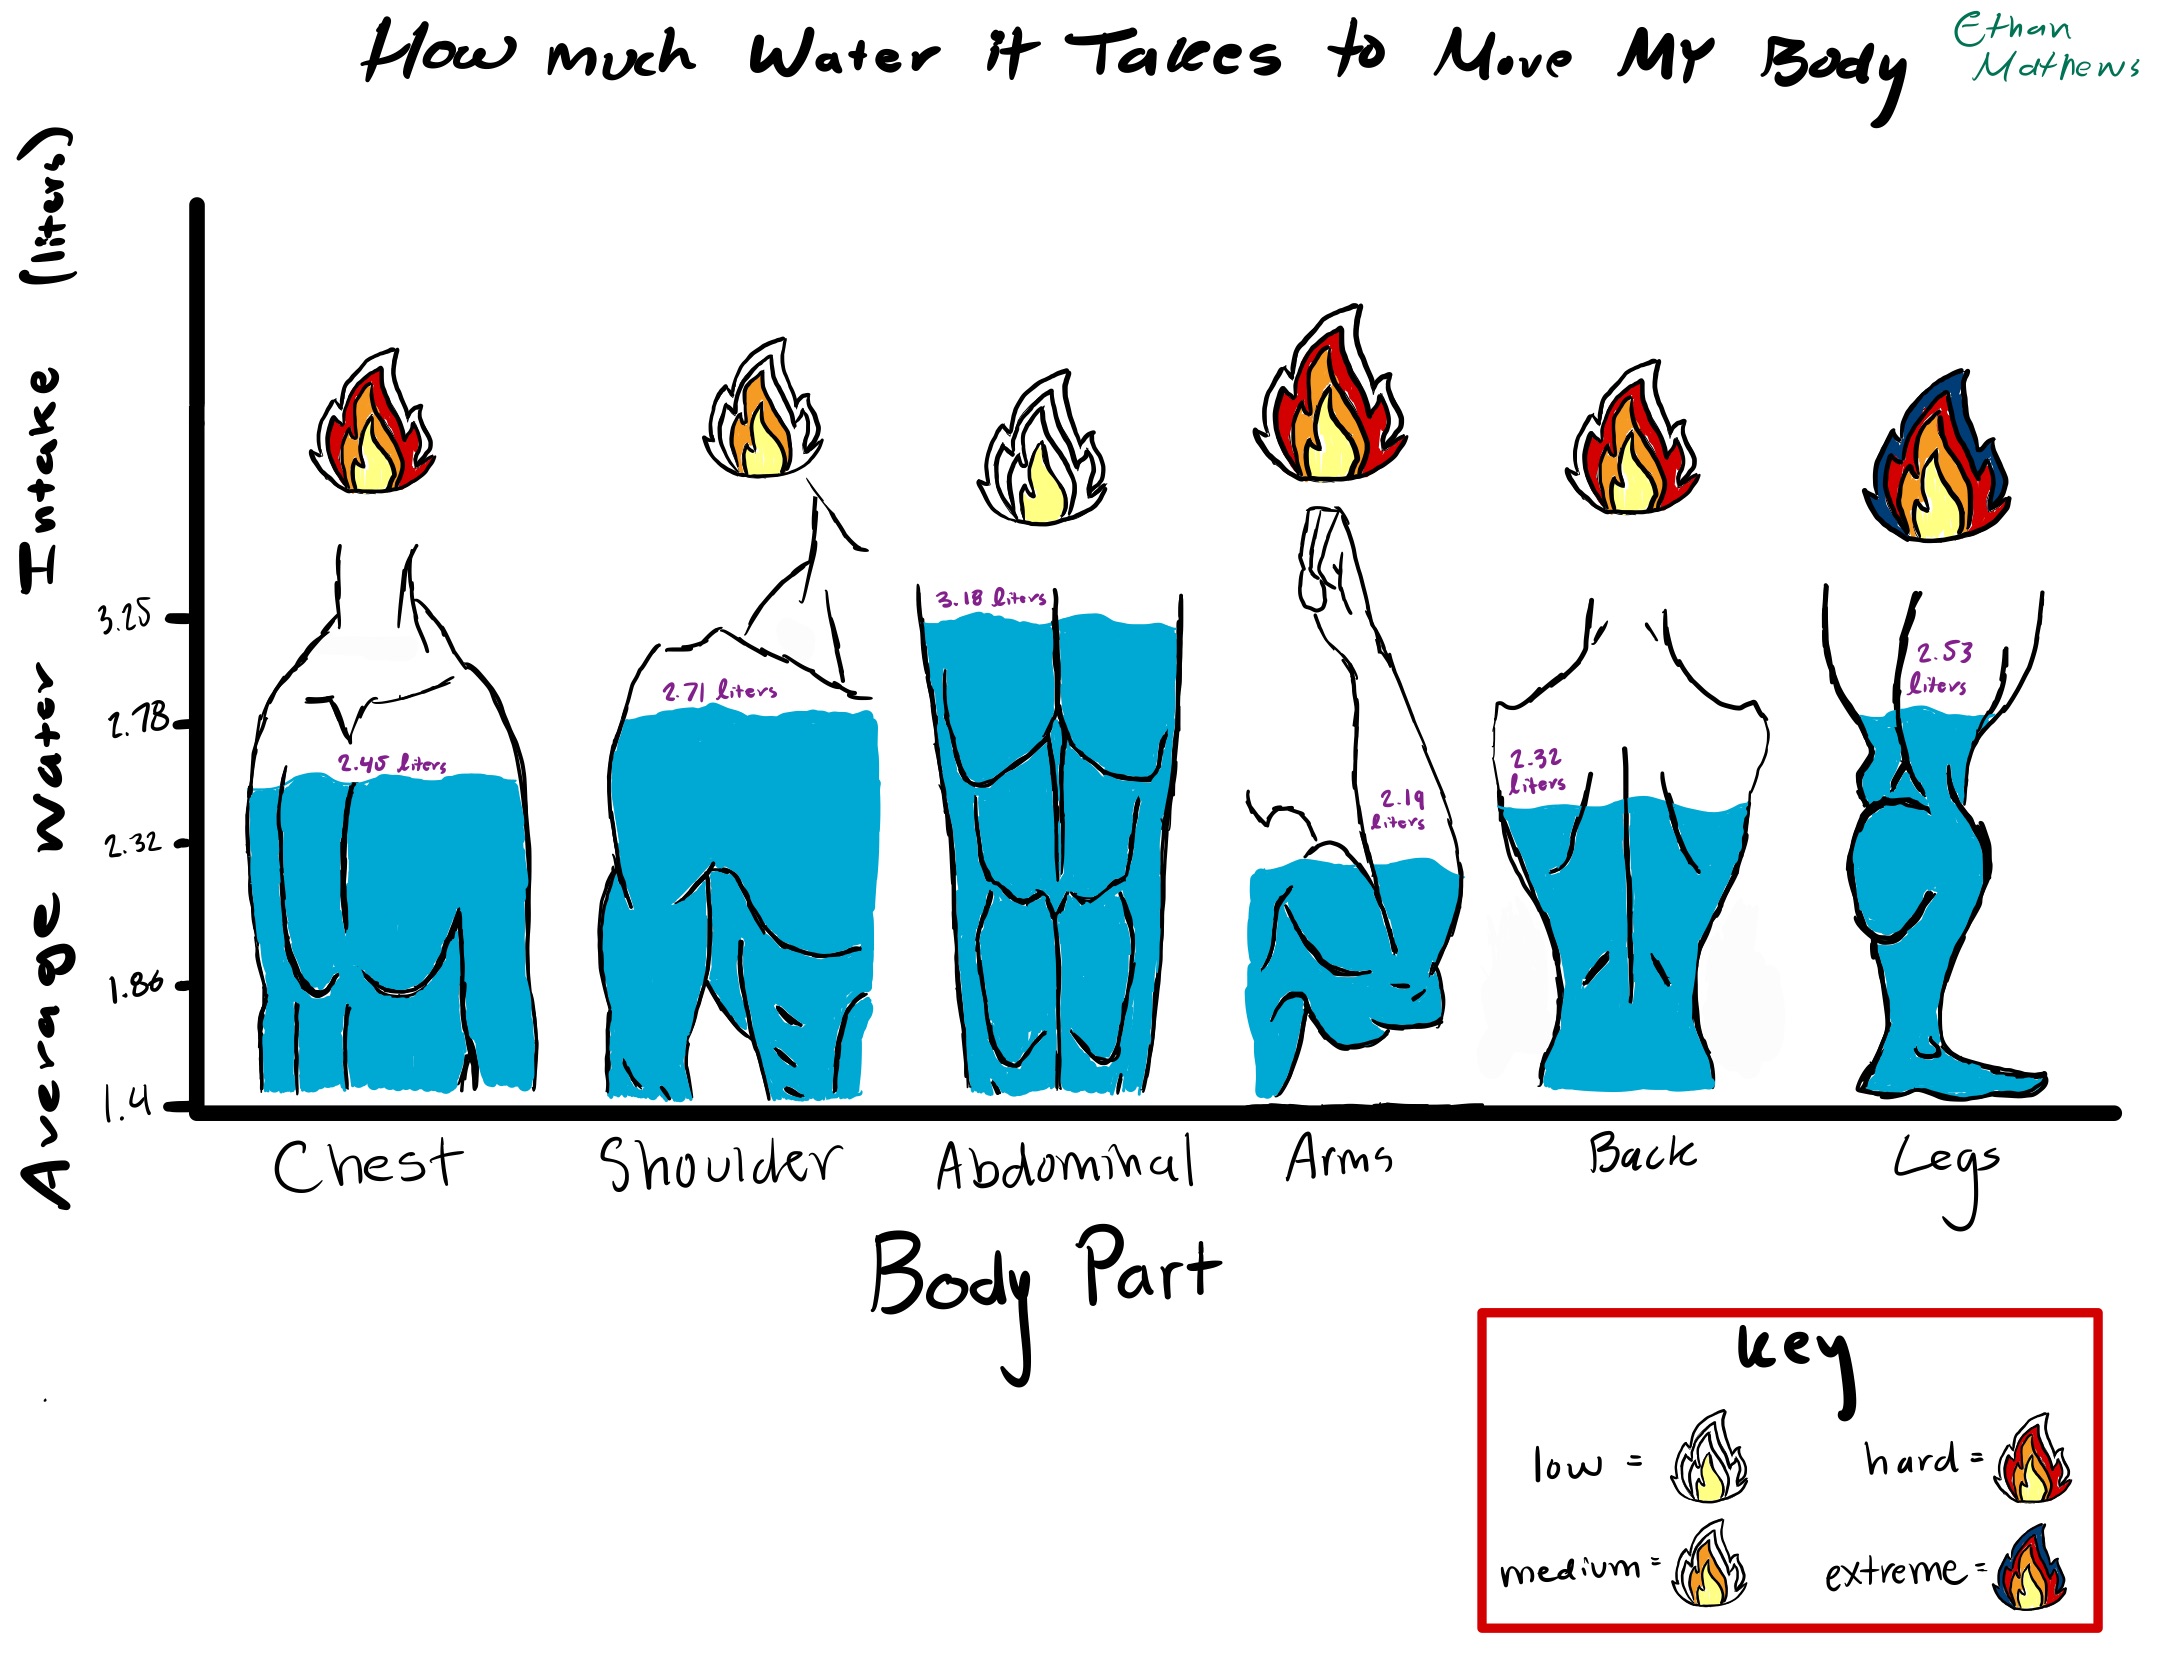 How much Water it Takes to Move My Body
Ethan
Mathews
Average Water Intake (liters)
3.25
2.78
2.32
1.86
1.4
2.45 liters
2.71 liters
3.18 liters
2.19
liters
2.32
liters
2.53
liters
Chest
Shoulder
Abdominal
Arms
Back
Legs
Body Part
key
low =
hard =
medium =
extreme =